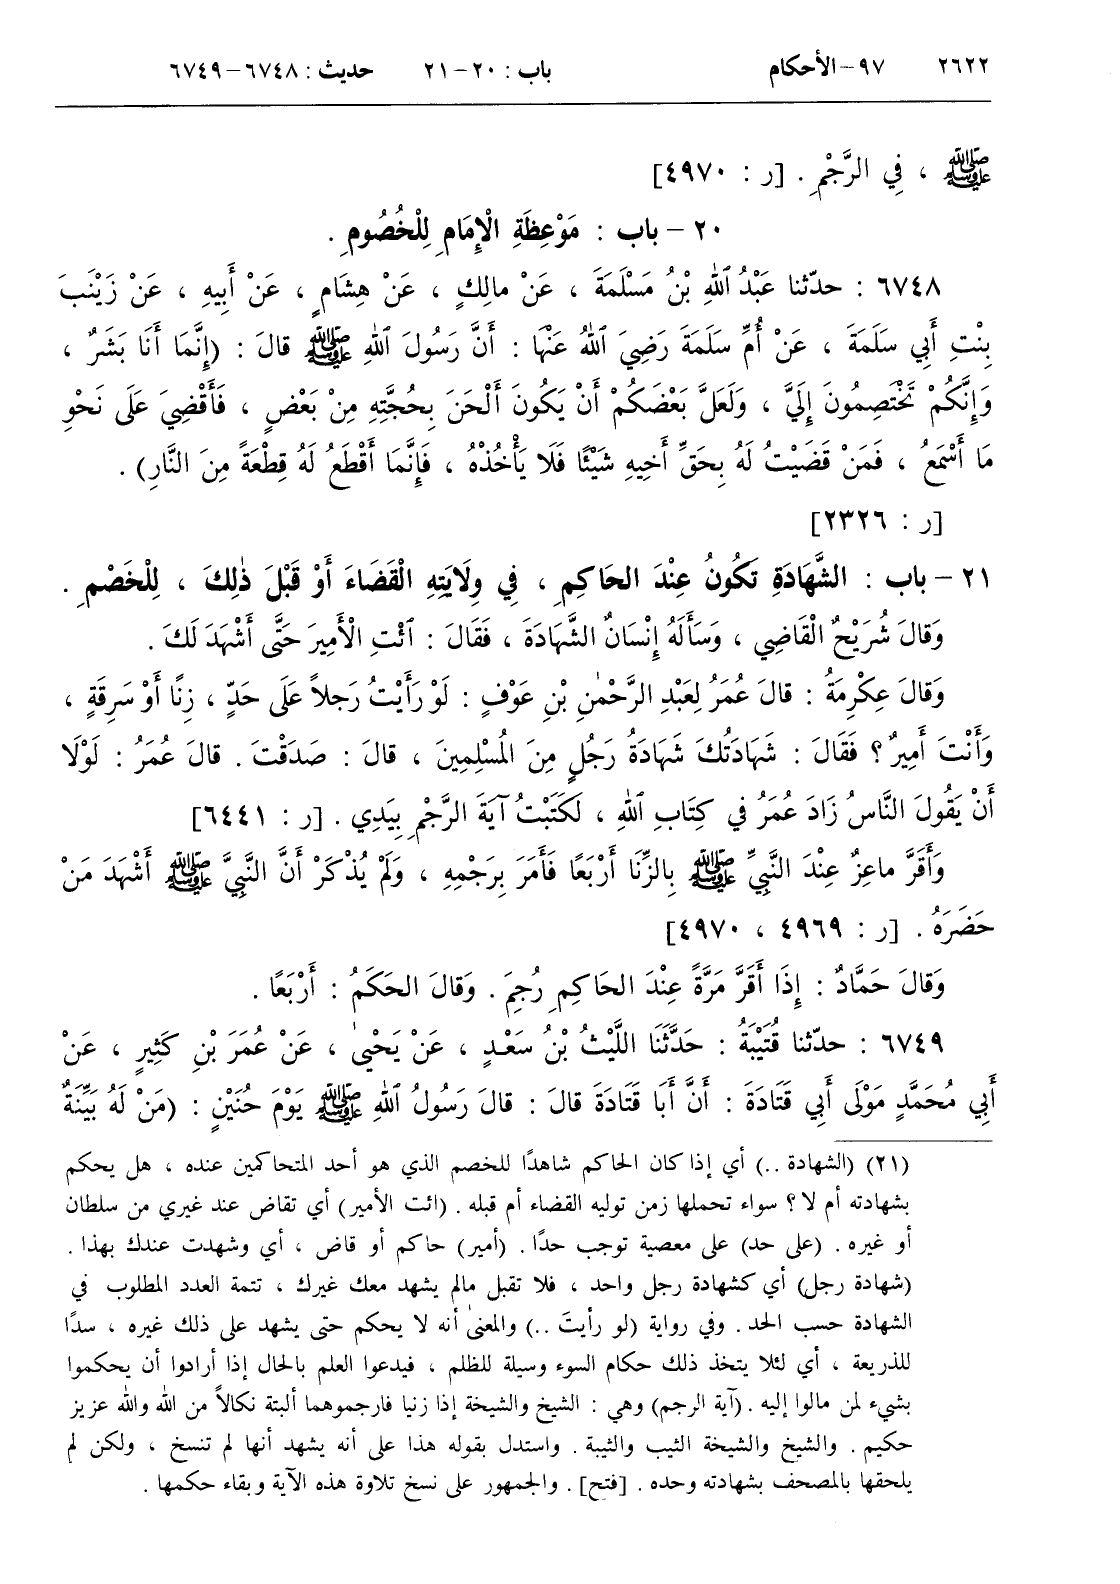 ٢٦٢٢ ٩٧-الأحكام باب : ٢٠-٢١ حديث : ٦٧٤٨-٦٧٤٩
ﷺ ، فِي الرَّجْمِ . [ر : ٤٩٧٠]
٢٠ - باب : مَوْعِظَةِ الْإِمَامِ لِلْخُصُومِ .
٦٧٤٨ : حدّثنا عَبْدُ اللهِ بْنُ مَسْلَمَةَ ، عَنْ مالِكٍ ، عَنْ هِشَامٍ ، عَنْ أَبِيهِ ، عَنْ زَيْنَبَ
بِنْتِ أَبِي سَلَمَةَ ، عَنْ أُمِّ سَلَمَةَ رَضِيَ اللهُ عَنْهَا : أَنَّ رَسُولَ اللهِ ﷺ قالَ : (إِنَّمَا أَنَا بَشَرٌ ،
وَإِنَّكُمْ تَخْتَصِمُونَ إِلَيَّ ، وَلَعَلَّ بَعْضَكُمْ أَنْ يَكُونَ أَلْحَنَ بِحُجَّتِهِ مِنْ بَعْضٍ ، فَأَقْضِيَ عَلَى نَحْوِ
مَا أَسْمَعُ ، فَمَنْ قَضَيْتُ لَهُ بِحَقِّ أَخِيهِ شَيْئًا فَلَا يَأْخُذْهُ ، فَإِنَّمَا أَقْطَعُ لَهُ قِطْعَةً مِنَ النَّارِ) .
[ر : ٢٣٢٦]
٢١ - باب : الشَّهَادَةِ تَكُونُ عِنْدَ الحَاكِمِ ، فِي وِلَايَتِهِ الْقَضَاءَ أَوْ قَبْلَ ذٰلِكَ ، لِلْخَصْمِ .
وَقالَ شُرَيْحٌ الْقَاضِي ، وَسَأَلَهُ إِنْسَانٌ الشَّهَادَةَ ، فَقَالَ : ٱئْتِ الْأَمِيرَ حَتَّى أَشْهَدَ لَكَ .
وَقالَ عِكْرِمَةُ : قالَ عُمَرُ لِعَبْدِ الرَّحْمٰنِ بْنِ عَوْفٍ : لَوْ رَأَيْتُ رَجلاً عَلَى حَدٍّ ، زِنًا أَوْ سَرِقَةٍ ،
وَأَنْتَ أَمِيرٌ ؟ فَقَالَ : شَهَادَتُكَ شَهَادَةُ رَجُلٍ مِنَ المُسْلِمِينَ ، قالَ : صَدَقْتَ . قالَ عُمَرُ : لَوْلَا
أَنْ يَقُولَ النَّاسُ زَادَ عُمَرُ في كِتَابِ اللهِ ، لَكَتَبْتُ آيَةَ الرَّجْمِ بِيَدِي . [ر : ٦٤٤١]
وَأَقَرَّ ماعِزٌ عِنْدَ النَّبِيِّ ﷺ بِالزِّنَا أَرْبَعًا فَأَمَرَ بِرَجْمِهِ ، وَلَمْ يُذْكَرْ أَنَّ النَّبِيَّ ﷺ أَشْهَدَ مَنْ
حَضَرَهُ . [ر : ٤٩٦٩ ، ٤٩٧٠]
وَقالَ حَمَّادٌ : إِذَا أَقَرَّ مَرَّةً عِنْدَ الحَاكِمِ رُجِمَ . وَقالَ الحَكَمُ : أَرْبَعًا .
٦٧٤٩ : حدّثنا قُتَيْبَةُ : حَدَّثَنَا اللَّيْثُ بْنُ سَعْدٍ ، عَنْ يَحْيىٰ ، عَنْ عُمَرَ بْنِ كَثِيرٍ ، عَنْ
أَبِي مُحَمَّدٍ مَوْلَى أَبِي قَتَادَةَ : أَنَّ أَبَا قَتَادَةَ قالَ : قالَ رَسُولُ اللهِ ﷺ يَوْمَ حُنَيْنٍ : (مَنْ لَهُ بَيِّنَةٌ
(٢١) (الشهادة ..) أي إذا كان الحاكم شاهدًا للخصم الذي هو أحد المتحاكمين عنده ، هل يحكم
بشهادته أم لا ؟ سواء تحملها زمن توليه القضاء أم قبله . (ائت الأمير) أي تقاض عند غيري من سلطان
أو غيره . (على حد) على معصية توجب حدًا . (أمير) حاكم أو قاض ، أي وشهدت عندك بهذا .
(شهادة رجل) أي كشهادة رجل واحد ، فلا تقبل مالم يشهد معك غيرك ، تتمة العدد المطلوب في
الشهادة حسب الحد . وفي رواية (لو رأيتَ ..) والمعنىٰ أنه لا يحكم حتى يشهد على ذلك غيره ، سدًا
للذريعة ، أي لئلا يتخذ ذلك حكام السوء وسيلة للظلم ، فيدعوا العلم بالحال إذا أرادوا أن يحكموا
بشيء لمن مالوا إليه . (آية الرجم) وهي : الشيخ والشيخة إذا زنيا فارجموهما ألبتة نكالاً من الله والله عزيز
حكيم . والشيخ والشيخة الثيب والثيبة . واستدل بقوله هذا على أنه يشهد أنها لم تنسخ ، ولكن لم
يلحقها بالمصحف بشهادته وحده . [فتح] . والجمهور على نسخ تلاوة هذه الآية وبقاء حكمها .